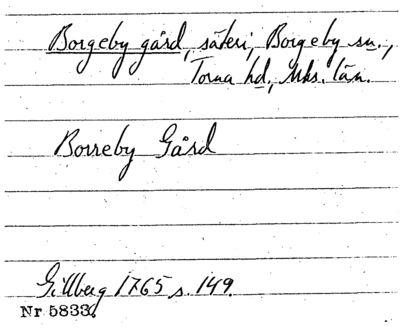 Borgeby gård, säteri, Borgeby sn.,
Torna hd, Mhs. län.
Borreby Gård
Gillberg 1765 s. 149.
Nr 5833